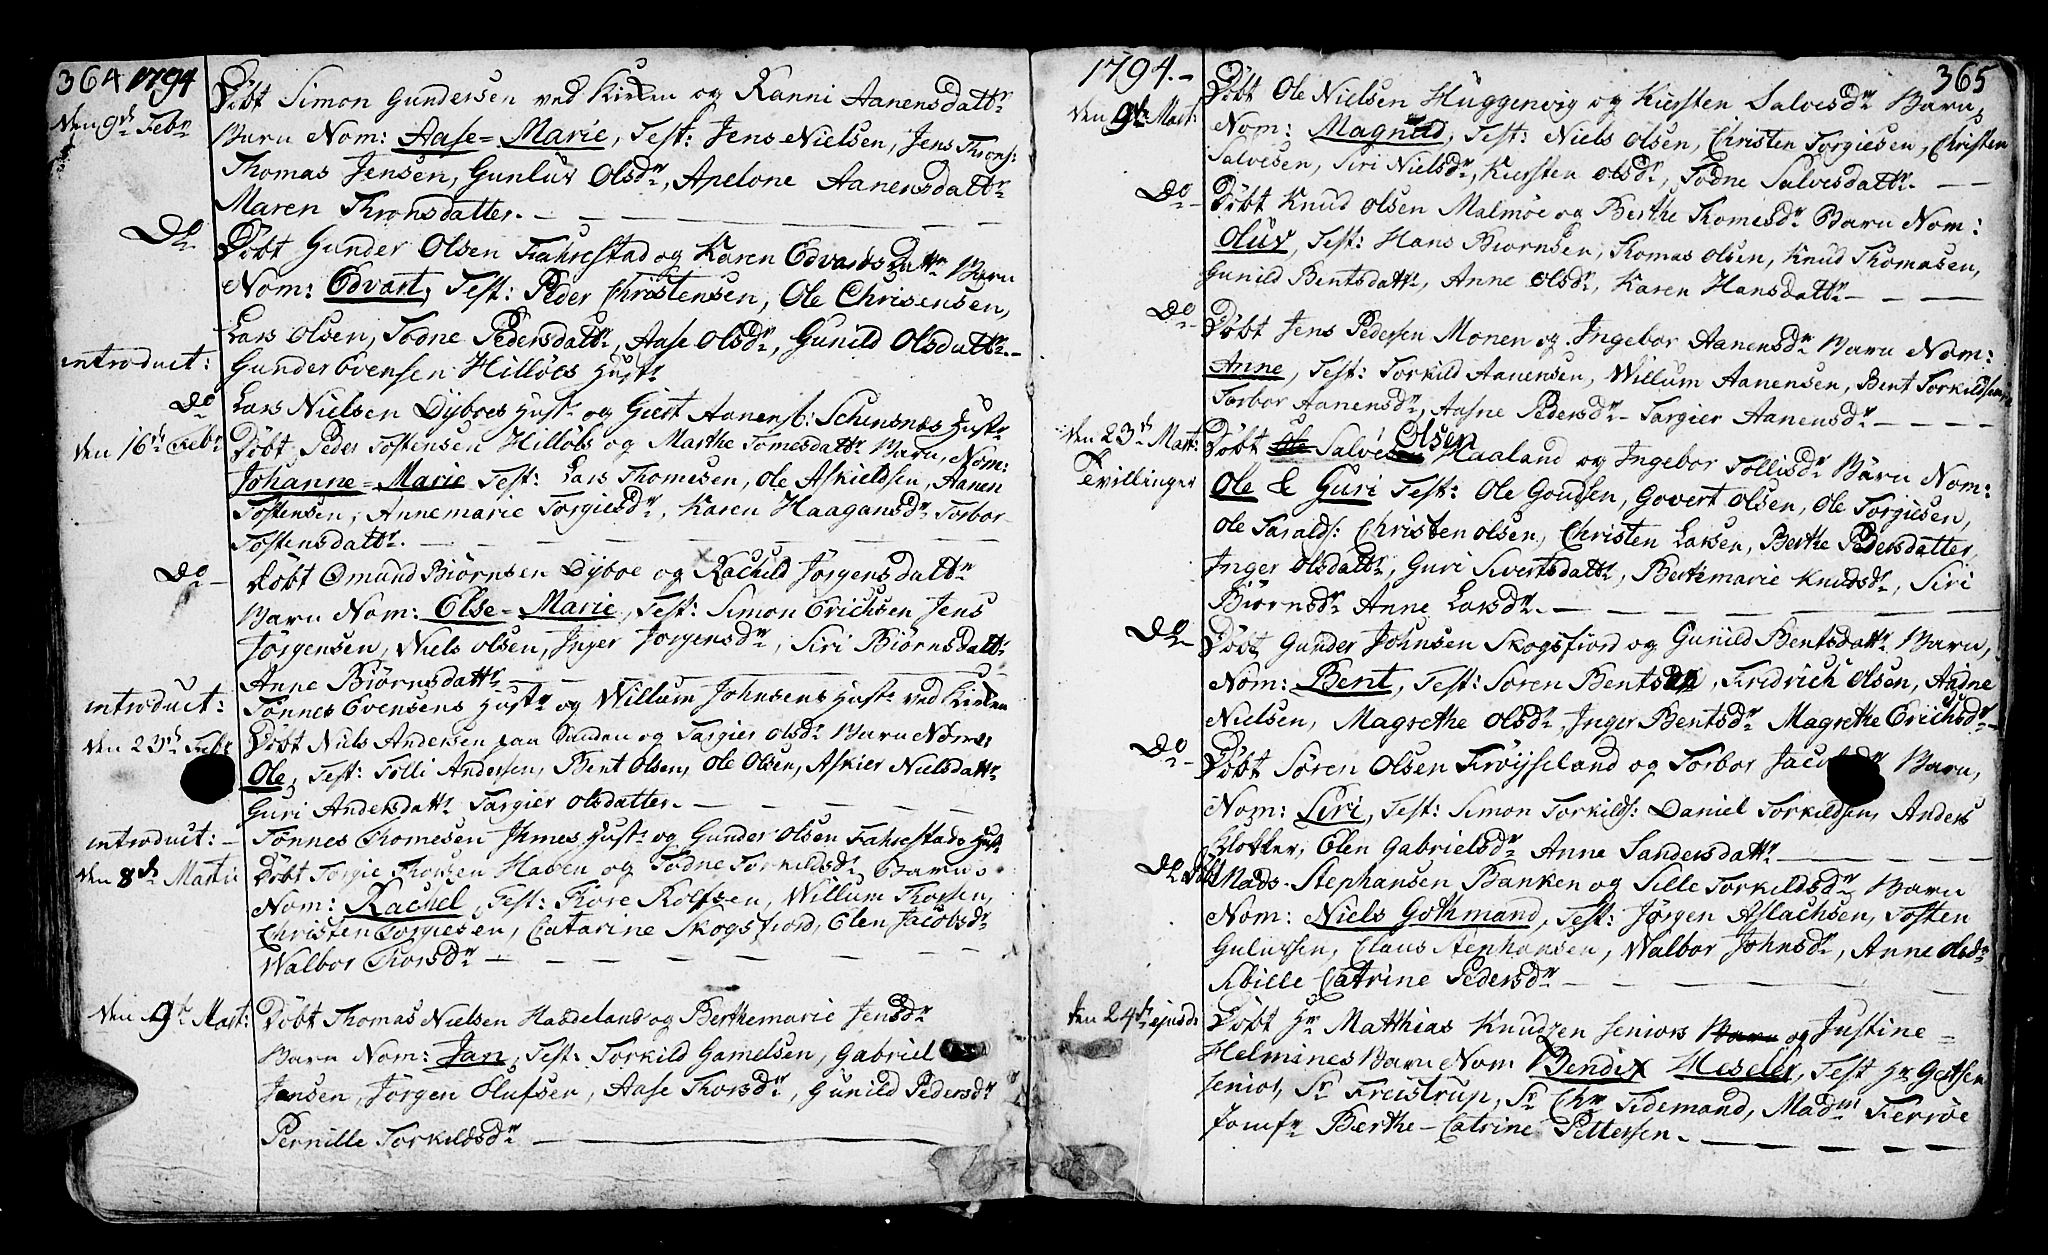 364 1794
Den 9de Febr Döbt Simon Gundersen ved Kirken og Ranni Aanensdattr
Barn Nom: Aase=Marie, Test: Jens Nielsen, Jens Trons:
Thomas Jensen, Gunluv Olsdr, Apelone Aanensdattr
Maren Thronsdatter. —
Do Döbt Gunder Olsen Fahrestad og Karen Edvardsdattr Barn
Nom: Edvart, Test: Peder Christensen, Ole Chrisensen,
Lars Olsen, Todne Pedersdattr, Aase Olsdr, Gunild Olsdattr. —
introduct: Gunder Evensen Hillöes Hustr
Do Lars Nielsen Dyboes Hustr og Giert Aanens: Schinsnes Hustr
Den 16de Febr Döbt Peder Tostensen Hillöes og Marthe Tomesdattr Barn, Nom:
Johanne=Marie Test: Lars Thomesen, Ole Askieldsen, Aanen
Tostensen, Annemarie Torgiesdr, Karen Haagansdr Torbor
Tostensdattr. —
Do — Döbt Omund Biörnsen Dyboe og Rachild Jörgensdattr
Barn Nom: Else=Marie, Test: Simon Erichsen Jens
Jörgensen, Niels Olsen, Inger Jörgensdr, Siri Biörnsdattr
Anne Biörnsdattr —
introduct: Tönnes Evensens Hustr og Willum Johnsens Hustr ved Kirken
Den 23de Febr Döbt Niels Andersen paa Sanden og Targier Olsdr Barn Nom:
Ole, Test: Tolli Andersen, Bent Olsen, Ole Olsen, Askier Nielsdattr
Guri Andersdattr Targier Olsdatter. —
introduct: — Tönnes Thomesen Ihmes Hustr og Gunder Olsen Fahrestads Hustr
Den 8de Martii Döbt Torgie Thorsen Haven og Todne Torkildsdr Barn
Nom: Rachel, Test: Tore Rolfsen, Willum Thorsen,
Christen Torgiesen, Catarine Skogsfiord, Elen Jacobsdr
Walbor Thorsdr —
Den 9de Mart: Döbt Thomas Nielsen Hasdeland og Berthemarie Jensdr
Barn Nom: Jan, Test: Torkild Gamelsen, Gabriel
Jansen, Jörgen Olufsen, Aase Thorsdr, Gunild Pedersdr
Pernille Torkildsdr —
1794. — 365
Den 9de Mart: Döbt Ole Nielsen Huggenvig og Kiersten Salvesdr Barn,
Nom: Magnild, Test: Niels Olsen, Christen Torgiesen, Christen
Salvesen, Siri Nielsdr, Kiersten Olsdr, Todne Salvesdattr. —
Do — Döbt Knud Olsen Malmöe og Berthe Thomesdr Barn Nom:
Oluv, Test: Hans Biornsen, Thomas Olsen, Knud Thomasen,
Gunild Bentsdattr, Anne Olsdr, Karen Hansdattr —
Do Döbt Jens Pedersen Monen og Ingebor Aanensdr Barn Nom:
Anne, Test: Torkild Aanensen, Willum Aanensen, Bent Torkildsen
Torbor Aanensdr, Aasne Pedersdr — Targier Aanensdr —
Den 23de Mart: Döbt Ole Salvesen Olsen Haaland og Ingebor Tollisdr Barn Nom:
Tvillinger Ole & Guri Test: Ole Goudsen, Govert Olsen, Ole Torgiesen,
Ole Taralds: Christen Olsen, Christen Larsen, Berthe Pedersdatter,
Inger Olsdattr, Guri Sivertsdattr, Berthemarie Knudsdr, Siri
Biörnsdr Anne Larsdr. —
Do Döbt Gunder Johnsen Skogsfiord og Gunild Bentsdattr Barn,
Nom: Bent, Test: Soren Bentsen, Fredrich Olsen, Aadne
Nielsen, Magrethe Olsdr, Inger Bentsdr Magrethe Erichsdr —
Do — Döbt Sören Olsen Fröysseland og Torbor Barn,
Nom: Siri, Test: Simon Torkilds: Daniel Torkildsen, Anders
Klokker, Elen Gabrielsdr Anne Sandersdattr —
Do Döbt Mads Stephansen Banken og Sille Torkildsdr Barn
Nom: Niels Gothmand, Test: Jörgen Aslachsen, Tosten
Gulussen, Claus Stephansen, Walbor Johnsdr, Anne Olsdr
Sibille Catrine Pedersdr —
Den 24de ejusd: Döbt Hr Matthias Knudzen seniors Barn og Justine=
Helmines Barn Nom Bendix Heseler, Test Hr Gertsen
senior, Sr Freistrup, Sr Chr Tidemand, Madm Ferröe
Jomfr Bærthe — Catrine Pettersen. —